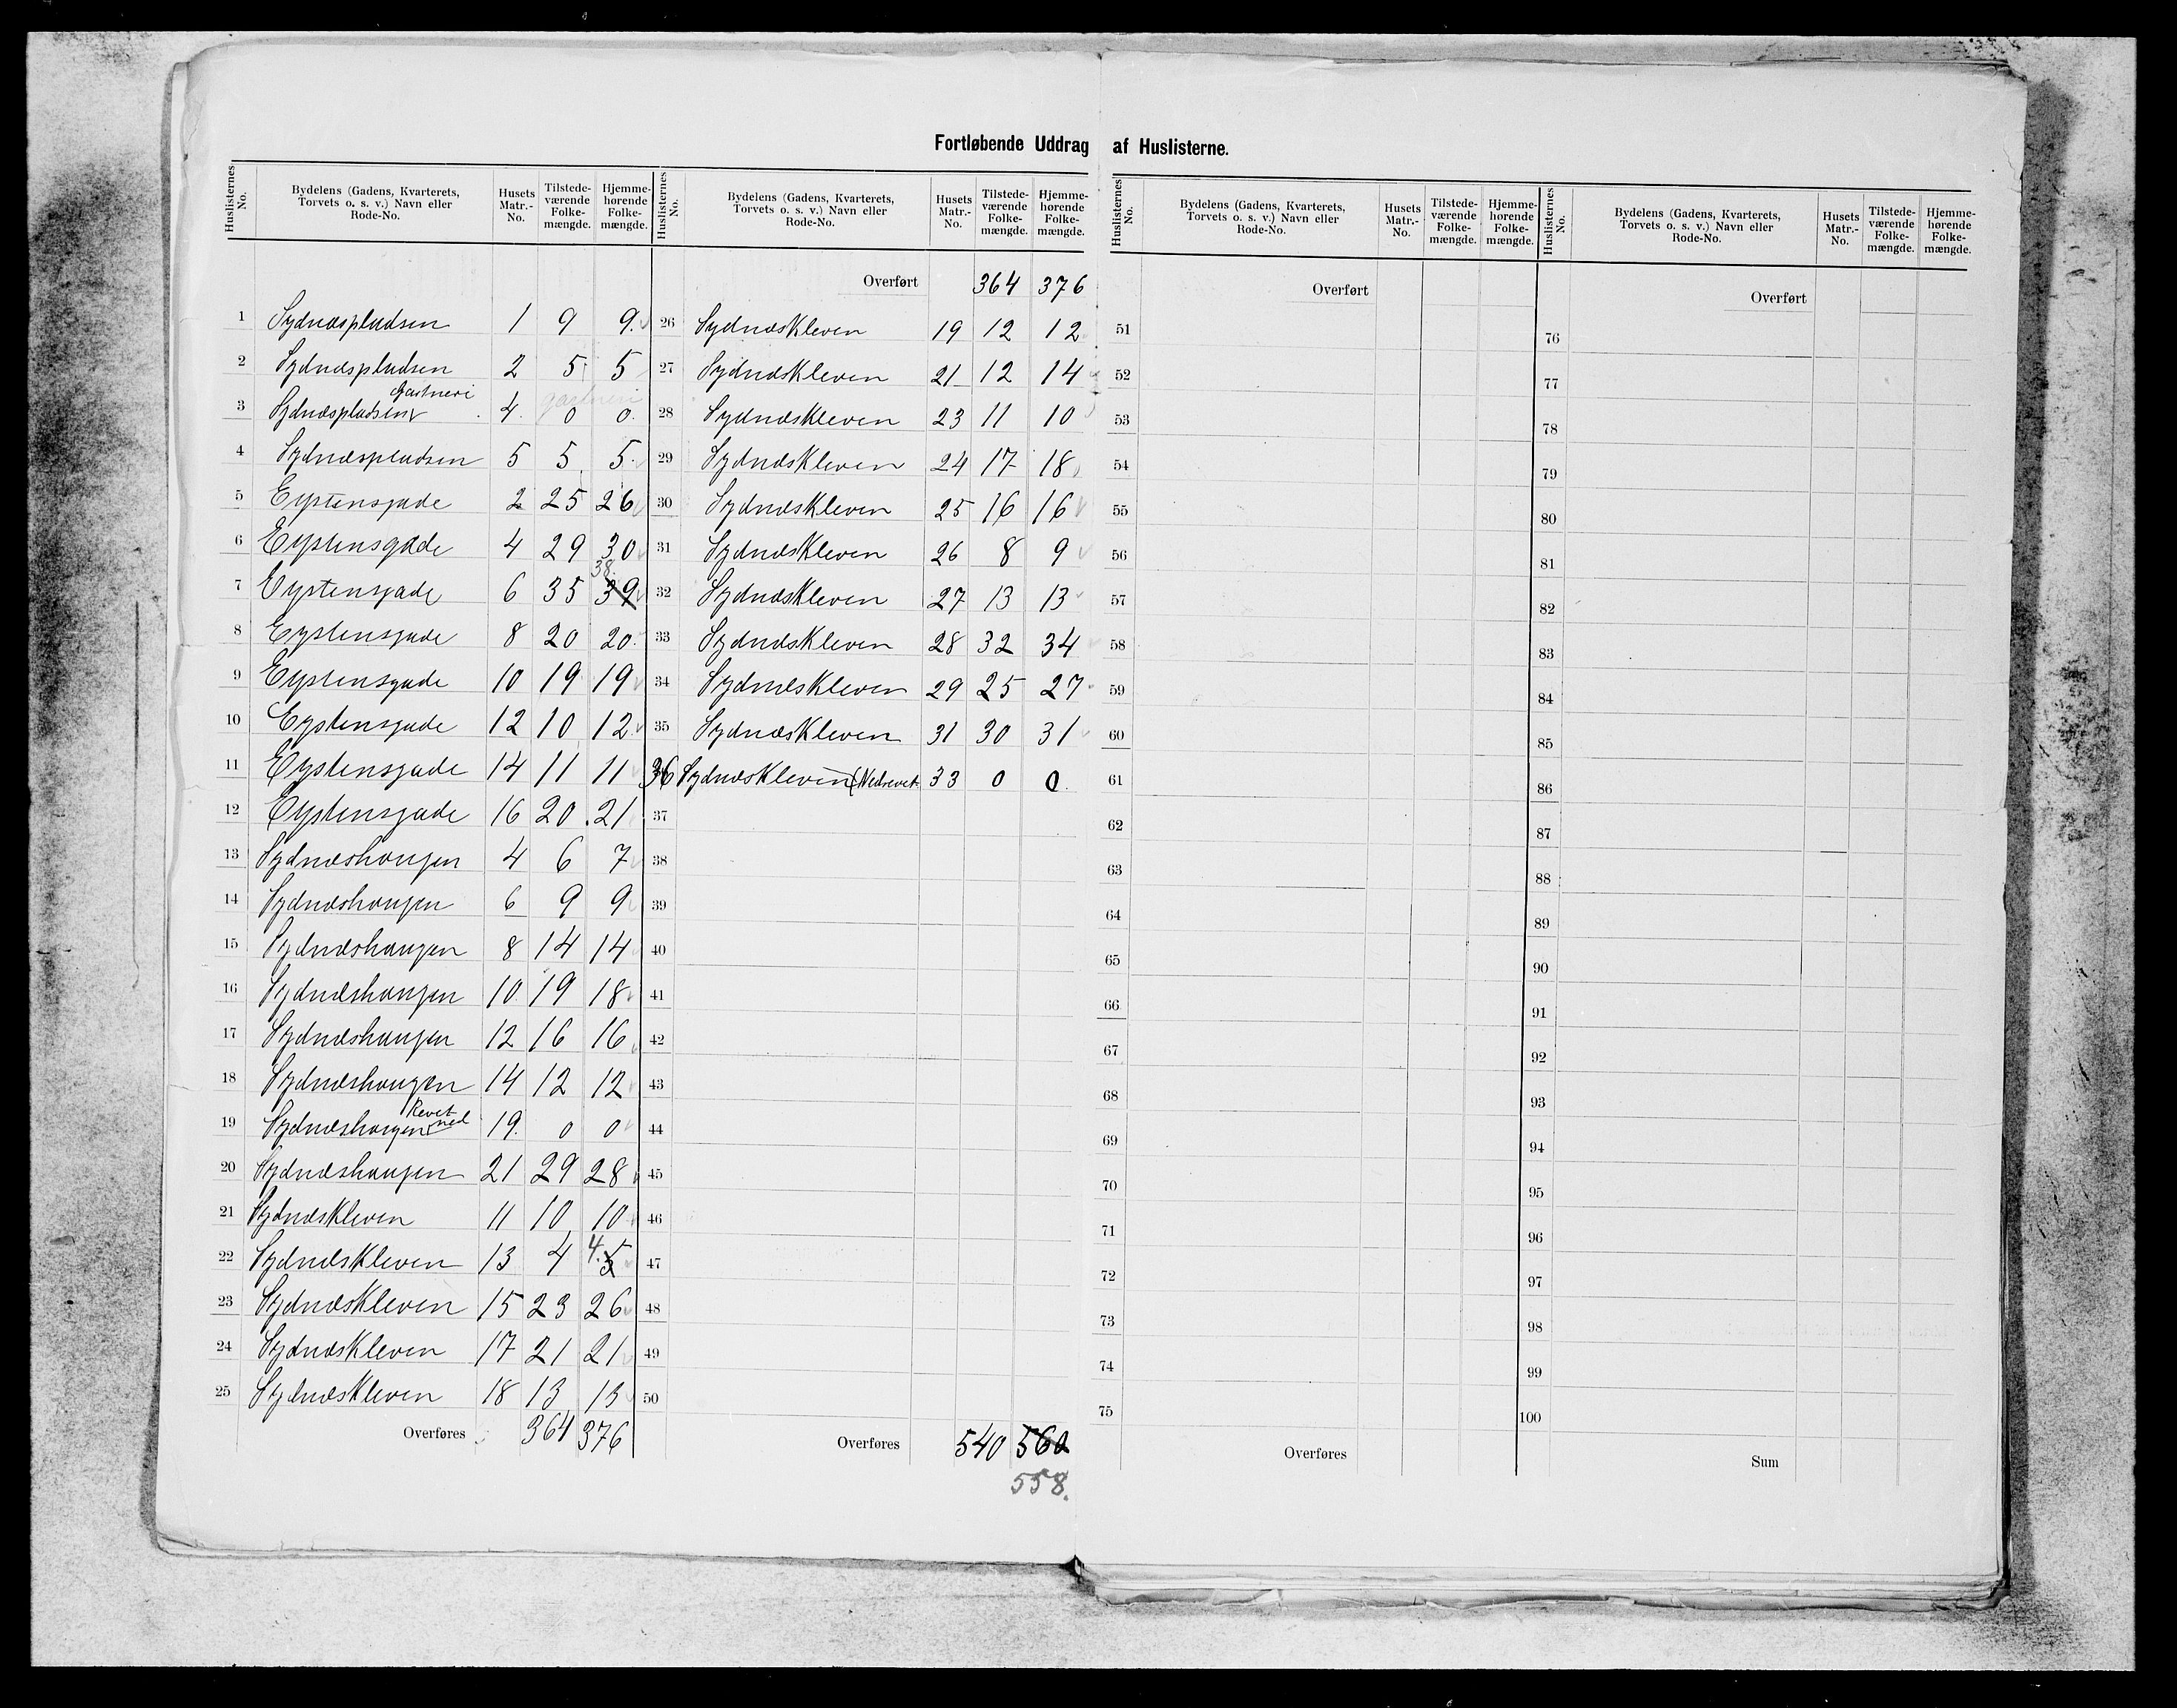 Fortløbende Uddrag af Huslisterne.
Huslisternes No. Bydelens (Gadens, Kvarterets, Torvets o. s. v.) Navn eller Rode-No. Husets Matr.-No. Tilstede-værende Folke-mængde. Hjemme-hørende Folke-mængde.
1 Sydnæspladsen 1 9 9.
2 Sydnæspladsen 2 5 5
Gartneri
gartneri
3 Sydnæspladsen 4. 0 0.
4 Sydnæspladsen 5 5. 5.
5 Eystensgade 2 25 26
6 Eystensgade 4 29 30
38.
7 Eystensgade 6 35 39
8 Eystensgade 8 20 20.
9 Eystensgade 10 19 19
10 Eystensgade 12 10 12.
11 Eystensgade 14 11 11
12 Eystensgade 16 20 21
13 Sydnæshaugen 4 6 7
14 Sydnæshaugen 6 9 9
15 Sydnæshaugen 8 14 14
16 Sydnæshaugen 10. 19 18
17 Sydnæshaugen 12 16 16
18 Sydnæshaugen 14 12 12
Revet ned
19 Sydnæshaugen 19. 0 0
20 Sydnæshaugen 21 29 28
21 Sydnæskleven 11 10 10
22 Sydnæskleven 13 4 4. 5
23 Sydnæskleven 15 23 26
24 Sydnæskleven 17 21 21
25 Sydnæskleven 18 13 13
Overføres 364 376
Huslisternes No. Bydelens (Gadens, Kvarterets, Torvets o. s. v.) Navn eller Rode-No. Husets Matr.-No. Tilstede-værende Folke-mængde. Hjemme-hørende Folke-mængde.
Overført 364 376
26 Sydnæskleven 19 12 12
27 Sydnæskleven 21 12 14
28 Sydnæskleven 23 11 10
29 Sydnæskleven 24 17 18
30 Sydnæskleven 25 16 16
31 Sydnæskleven 26 8 9
32 Sydnæskleven 27 13 13
33 Sydnæskleven 28 32 34
34 Sydnæskleven 29 25 27
35 Sydnæskleven 31 30 31
36 Sydnæskleven (Nedrevet. 33 0 0.
37
38
39
40
41
42
43
44
45
46
47
48
49
50
Overføres 540 560
558.
Huslisternes No. Bydelens (Gadens, Kvarterets, Torvets o. s. v.) Navn eller Rode-No. Husets Matr.-No. Tilstede-værende Folke-mængde. Hjemme-hørende Folke-mængde.
Overført
51
52
53
54
55
56
57
58
59
60
61
62
63
64
65
66
67
68
69
70
71
72
73
74
75
Overføres
Huslisternes No. Bydelens (Gadens, Kvarterets, Torvets o. s. v.) Navn eller Rode-No. Husets Matr.-No. Tilstede-værende Folke-mængde. Hjemme-hørende Folke-mængde.
Overført
76
77
78
79
80
81
82
83
84
85
86
87
88
89
90
91
92
93
94
95
96
97
98
99
100
Sum